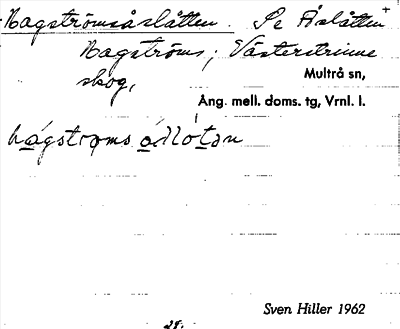 Hagströmsåslåtten. Se Åslåtten+
Hagströms; Västerstrinne
skog,
Multrå sn,
Ång. mell. doms. tg, Vrnl. l.
hágstroms
Sven Hiller 1962
28.